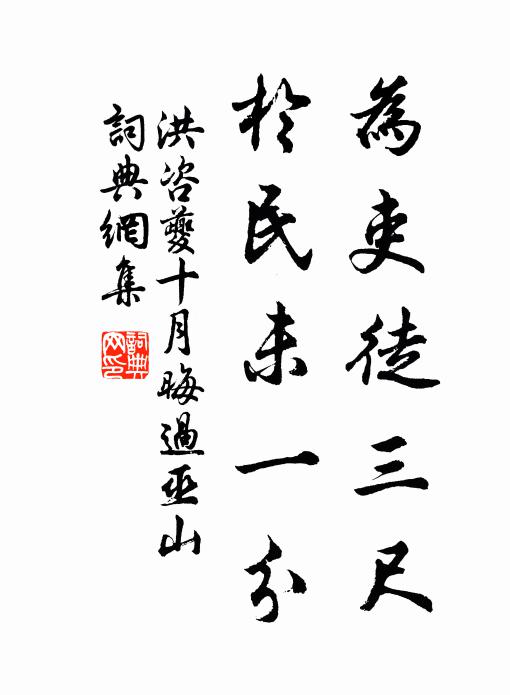 為吏徒三尺
於民未一分
洪咨夔十月晦過巫山
詞典網集
詞典網印